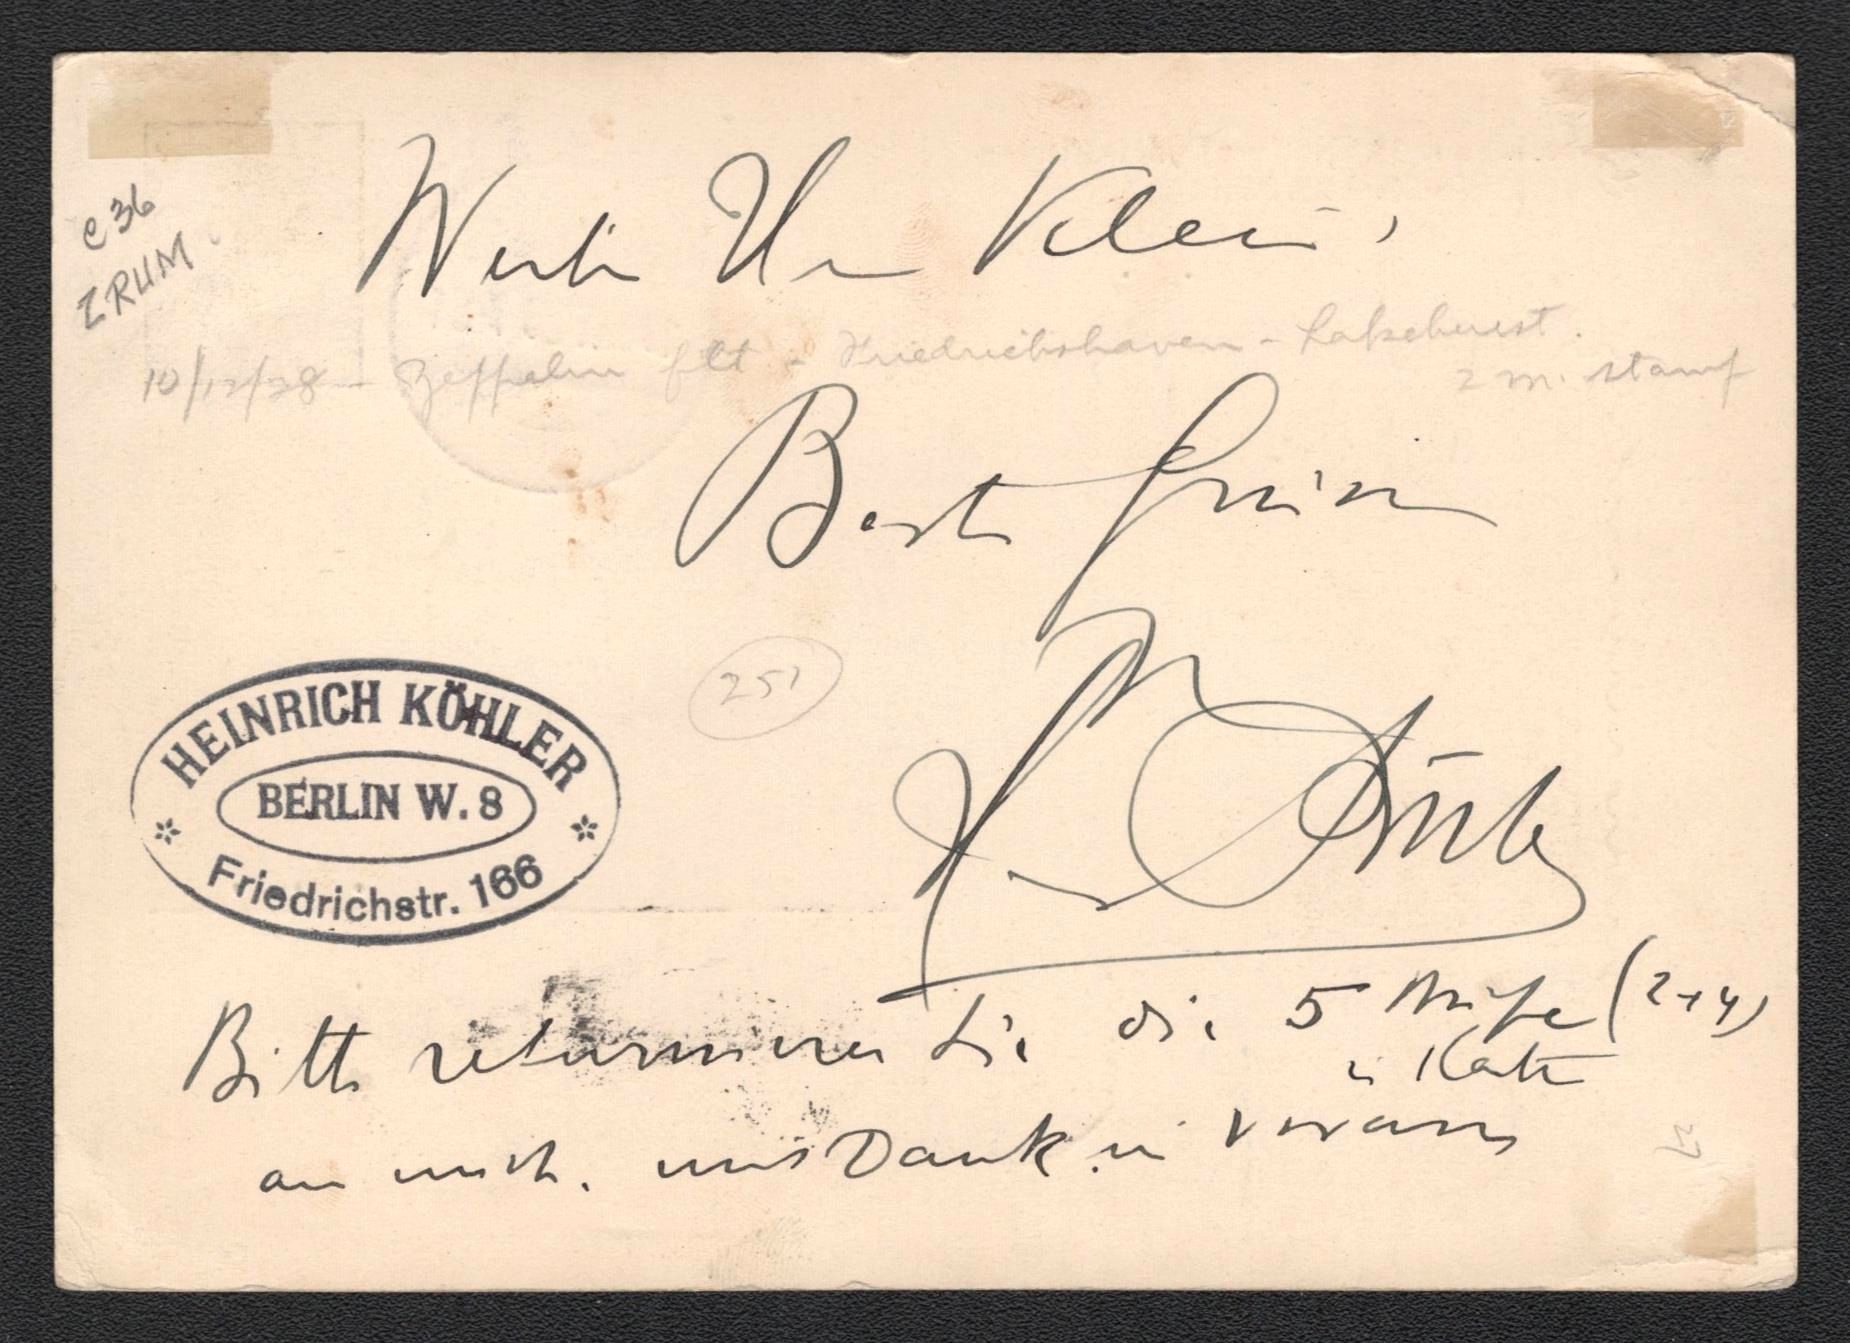 C 36
ZRUM
Werter Herr Klein,
10/12/28 - Zeppelin flt - Friedrichshaven - Lakehurst.
2 m. stamp
Beste Grüsse
251
HEINRICH KÖHLER
BERLIN W. 8
Friedrichstr. 166
Bitte returnieren Sie die 5 Briefe (2+4)
u Karte
an mich. Dank im voraus